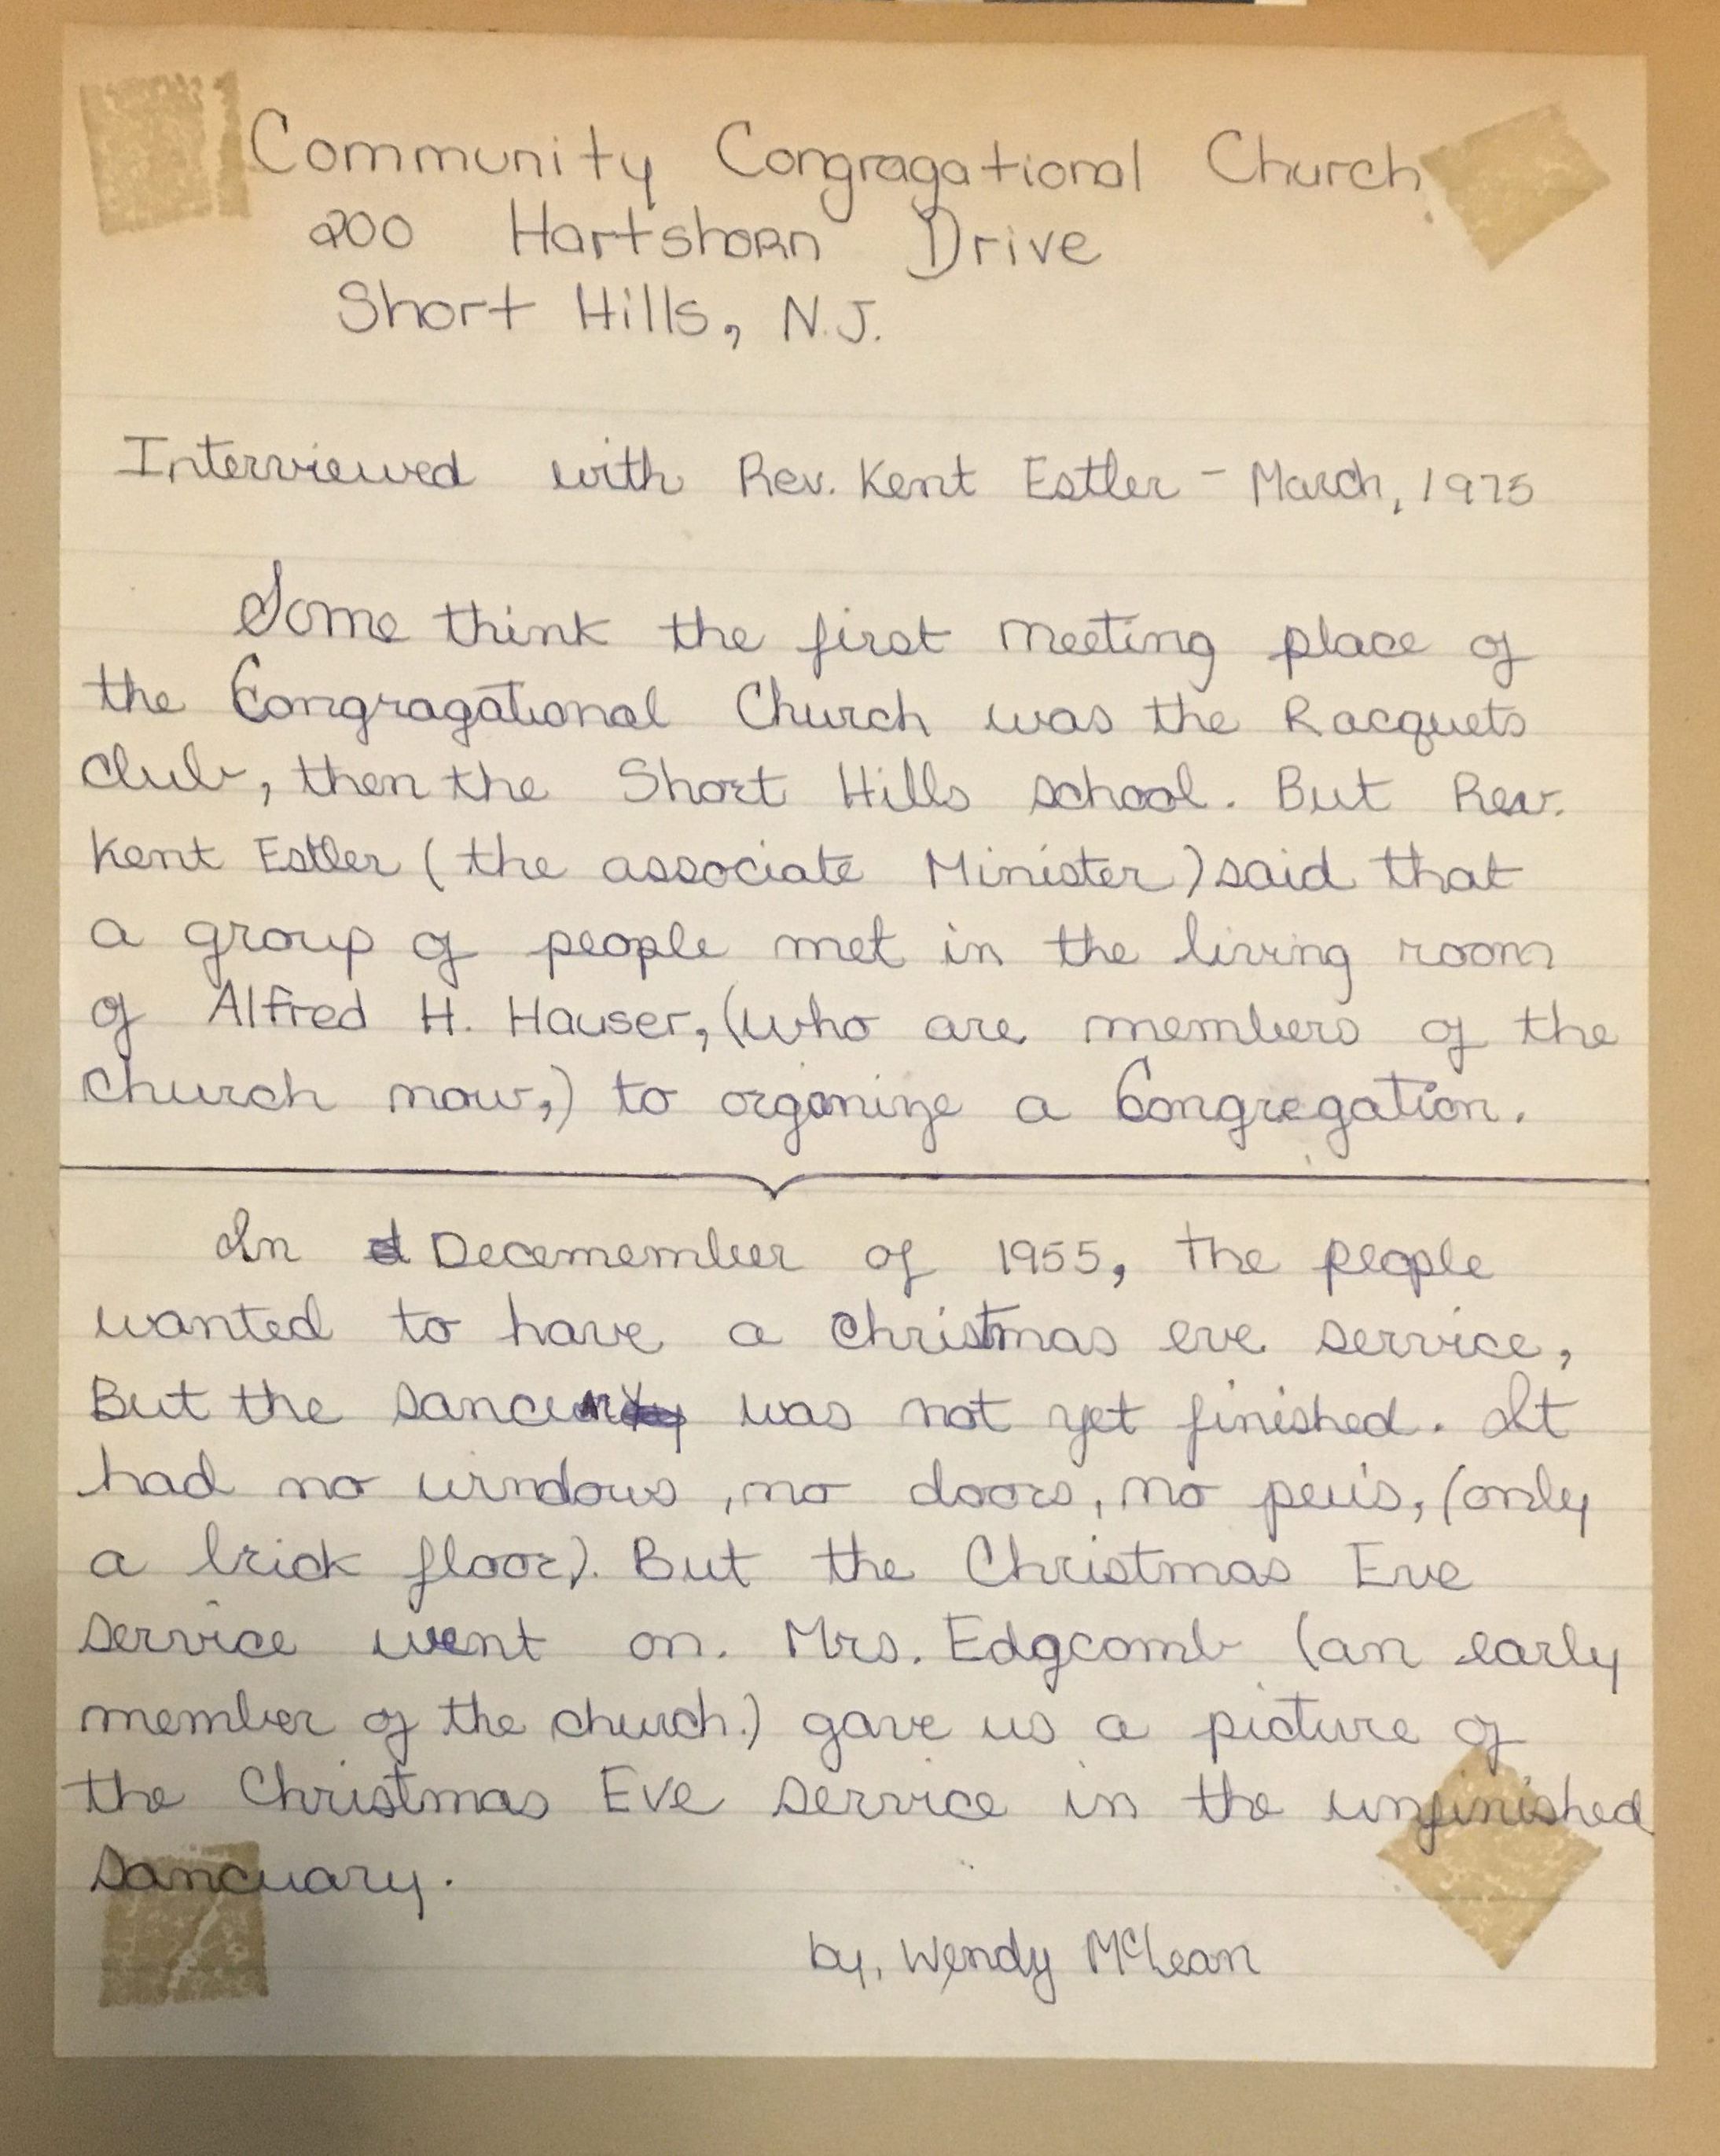 Community Congragational Church
200 Hartshorn Drive
Short Hills, N.J.
Interviewed with Rev. Kent Estler - March, 1975
Some think the first meeting place of
the Congragational Church was the Racquets
club, then the Short Hills school. But Rev.
Kent Estler (the associate Minister) said that
a group of people met in the living room
of Alfred H. Hauser, (who are members of the
church now,) to organize a Congregation.
In Decemember of 1955, the people
wanted to have a Christmas eve service,
But the was not yet finished. It
had no windows, no doors, no pew's, (only
a brick floor). But the Christmas Eve
service went on. Mrs. Edgcomb (an early
member of the church.) gave us a picture of
the Christmas Eve service in the unfinished
Sancuary.
by, Wendy McLean